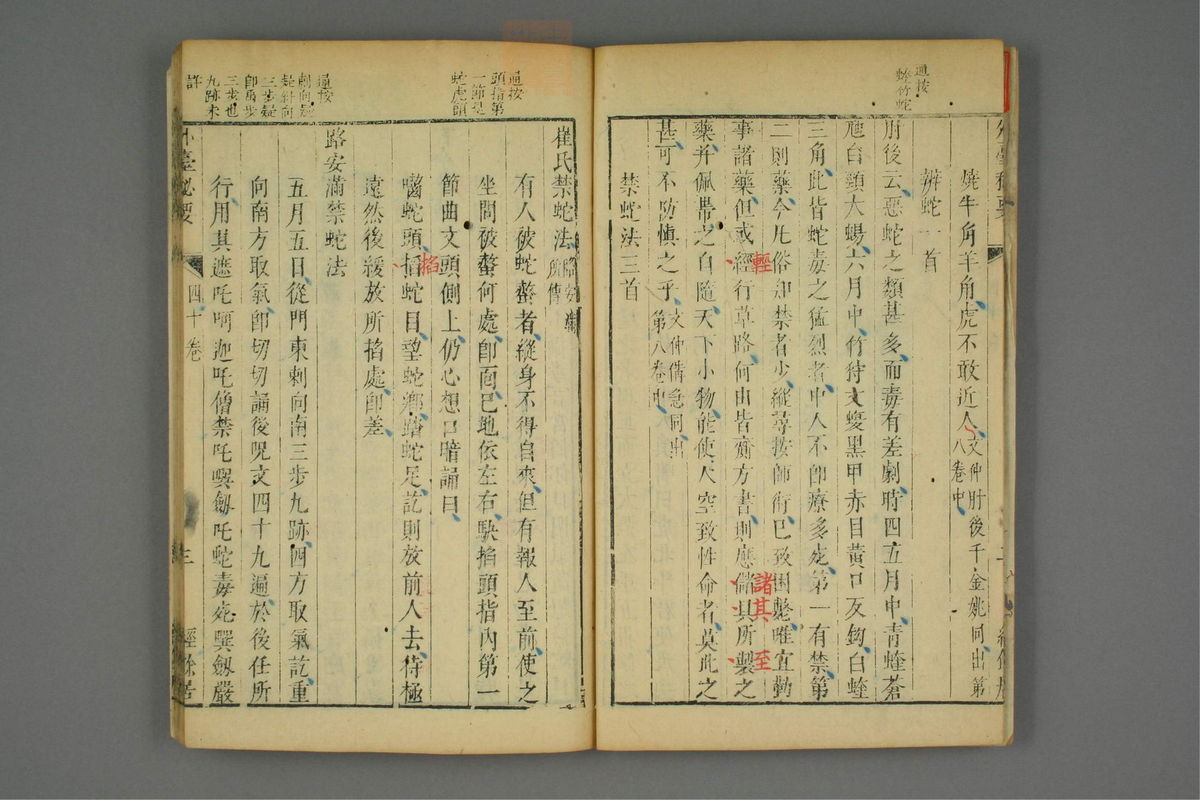 燒牛角羊角虎不敢近人文仲肘後千金姚同出第八卷中
辨蛇一首
肘後云惡蛇之類甚多而毒有差劇時四五月中青蝰蒼
虺白頸大蜴六月中竹狩文蝮黑甲赤目黃口反鉤白蝰
三角此皆蛇毒之猛烈者中人不即療多死第一有禁第
二則藥今凡俗知禁者少縱尋按師術已致困斃唯宜勤
事諸藥但或經行草路何由皆齎方書則應儲具所製之
藥并佩帶之自隨天下小物能使人空致性命者莫此之
甚可不防慎之乎文仲備急同出第八卷中
禁蛇法三首
輕
諸其
至
通按
蝰竹蛇
崔氏禁蛇法路安滿所傳
有人被蛇螫者縱身不得自來但有報人至前使之
坐問被螫何處即面巳地依左右缺掐頭指內第一
節曲文頭側上仍心想口暗誦曰
囓蛇頭掐蛇目望蛇鄉踏蛇足訖則放前人去待極
掐
遠然後緩放所掐處即差
路安滿禁蛇法
五月五日從門東刺向南三步九跡四方取氣訖重
向南方取氣即切切誦後呪文四十九遍於後任所
行用其遮吒啊迦吒僧禁吒㗲劔吒蛇毒死㗲劔嚴
通按
頭指第
一節是
蛇虎頭
通按
刺向疑
是斜向
三步疑
即禹步
三步也
九跡未
詳
外臺秘要
四十卷
三
經餘居